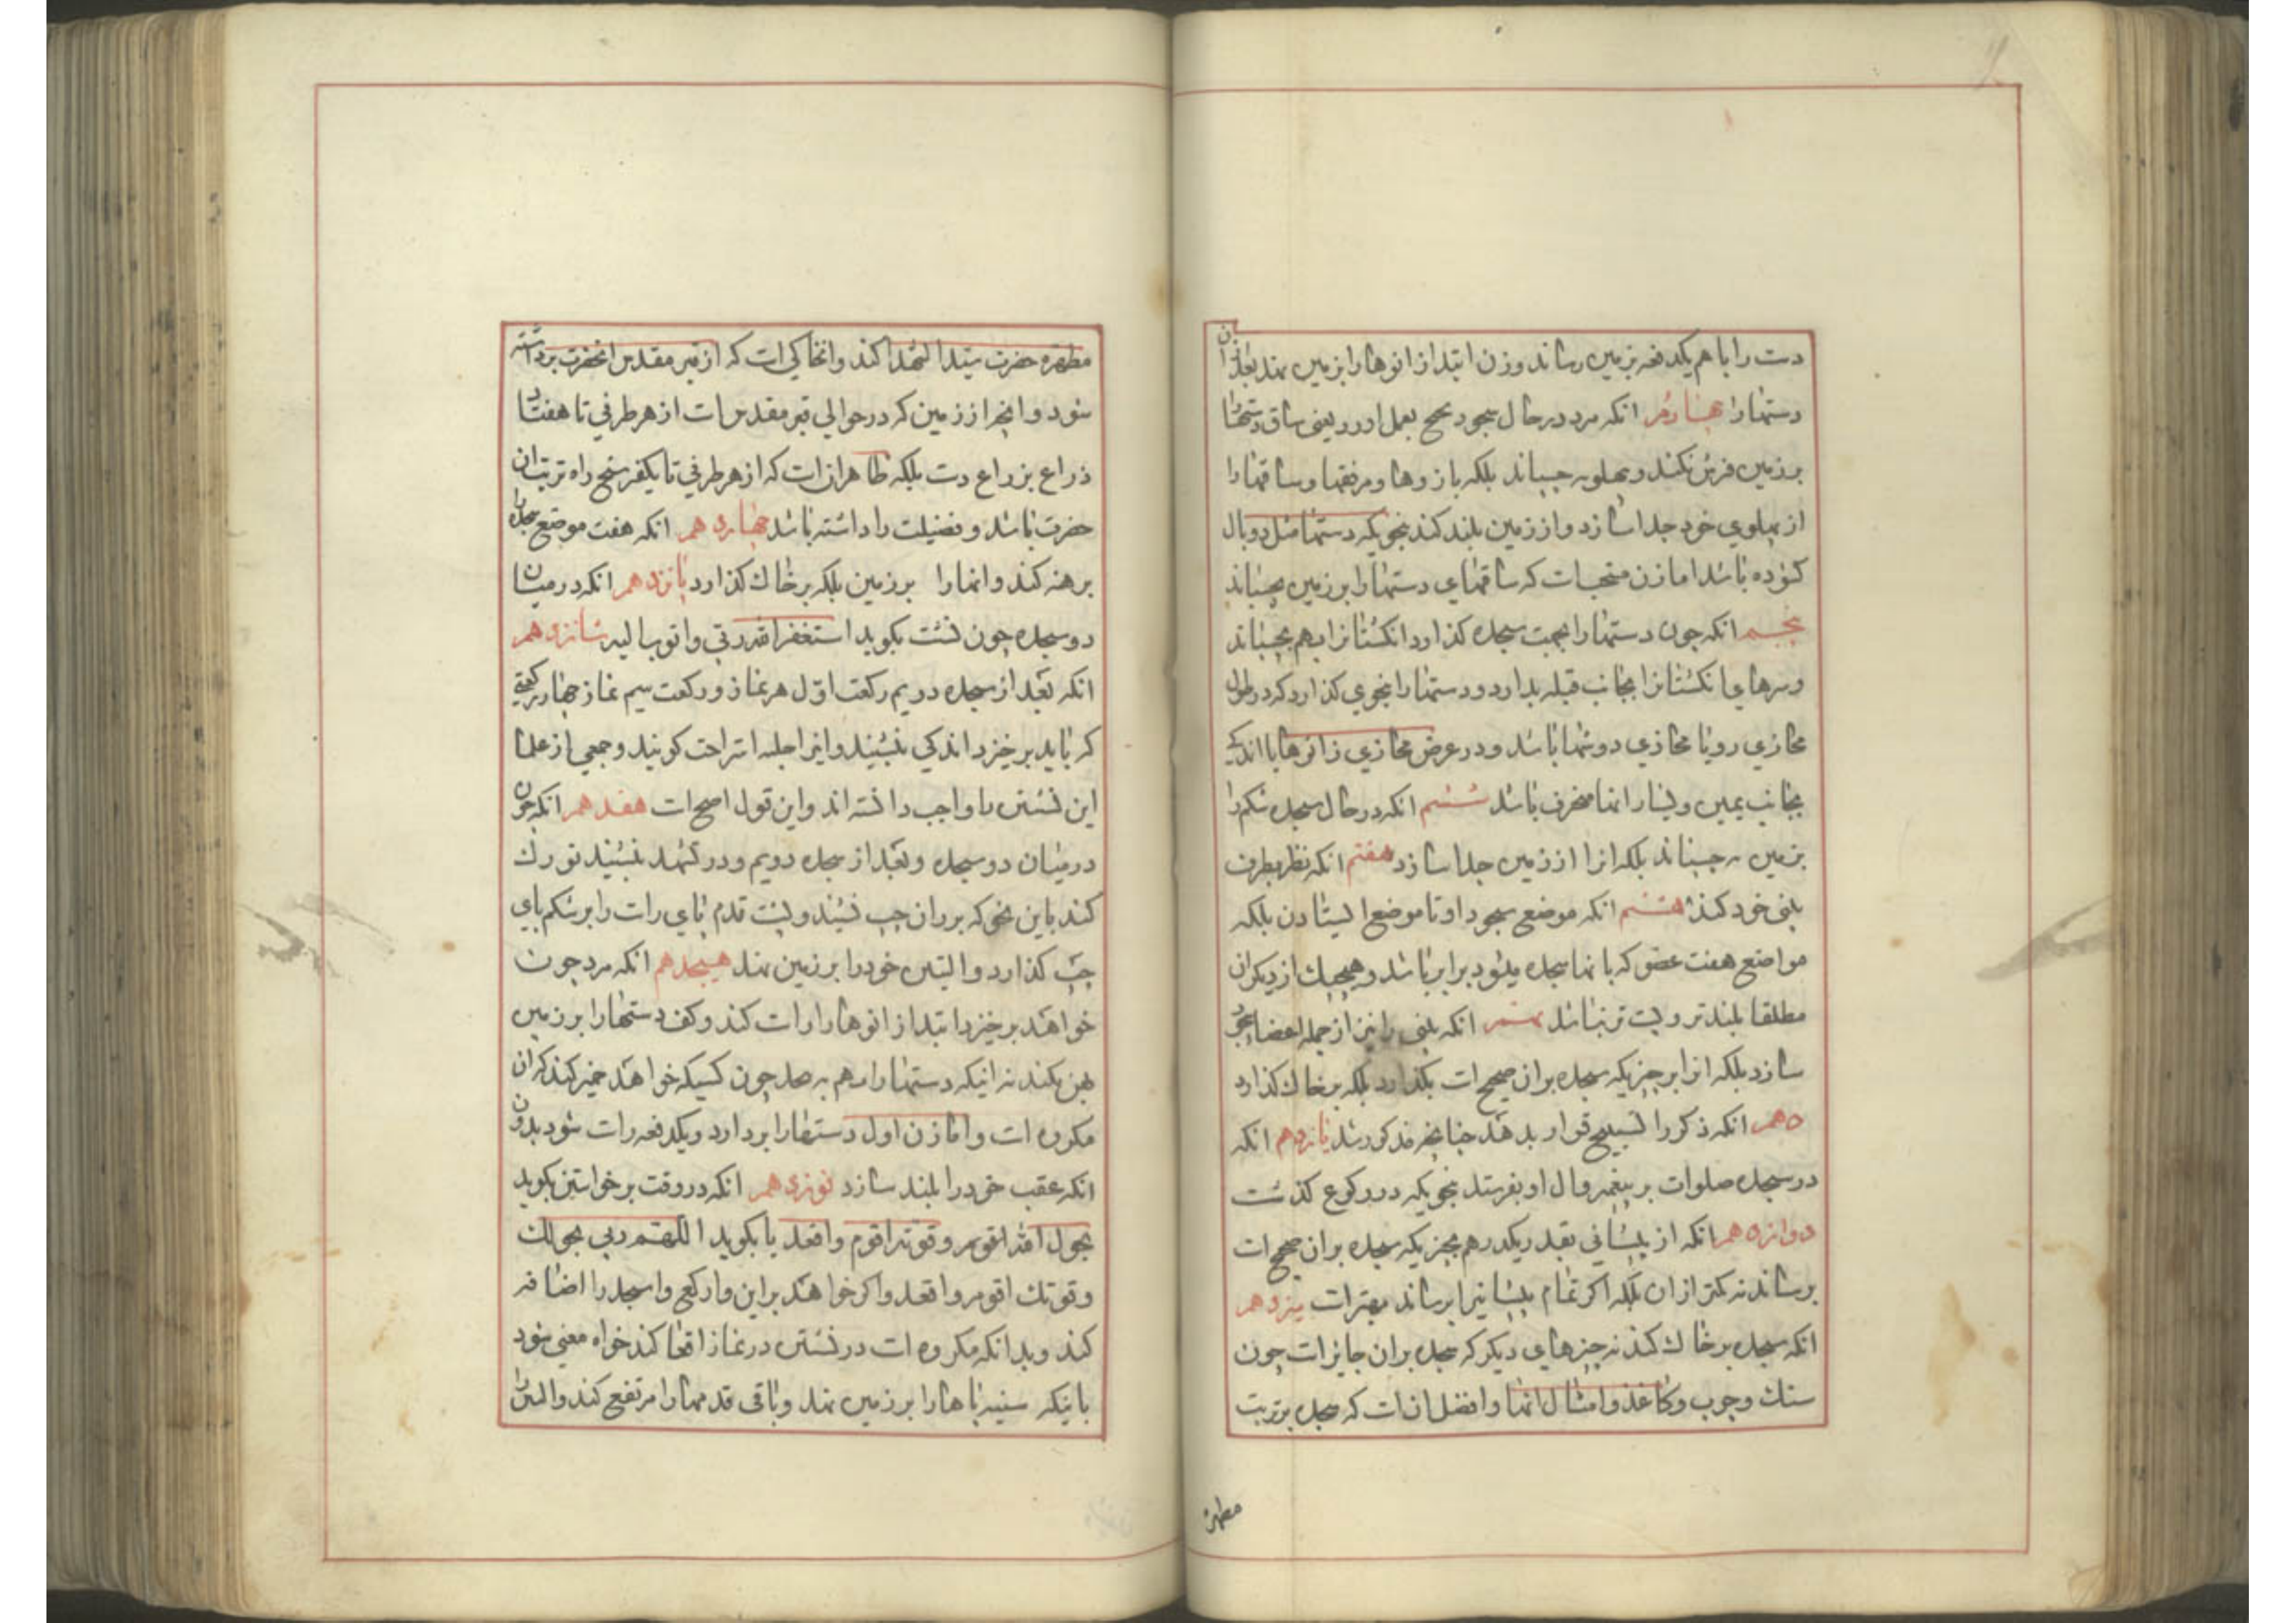 دست را با هم یکدفعه بزمین رساند و زن ابتدا زانوها را بزمین نهد بعد از ان
دستها را چهارم انکه مرد در حال سجود تجنح بعمل اورد یعنی ساق دستها را
بر زمین فرش نکند و بپهلو نه چسباند بلکه بازوها و مرفقها و ساقها را
از پهلوی خود جدا سازد و از زمین بلند کند بنحویکه دستها مثل دو بال
کشوده باشد اما زن مستحبست که ساقهای دستها را بر زمین بچسباند
پنجم انکه چون دستها را بجهت سجده کذارد انکشتانرا بهم بچسباند
و سرهای انکشتانرا بجانب قبله بدارد و دستها را بنحوی کذارد که در طول
محاذی رو یا محاذی دوشها باشد و در عرض محاذی زانوها با اندکی
بجانب یمین و یسار انها منحرف باشد ششم انکه در حال سجده شکم را
بزمین نه چسباند بلکه انرا از زمین جدا سازد هفتم انکه نظر بطرف
بینی خود کند هشتم انکه موضع سجود او تا موضع ایستادن بلکه
مواضع هفت عضو که بانها سجده میشود برابر باشد و هیچیک از دیکران
مطلقا بلندتر و پست تر نباشد نهم انکه بینی را نیز از جمله اعضا سجود
سازد بلکه انرا بر چیزیکه سجده بران صحیح است بکذارد بلکه بر خاک کذارد
دهم انکه ذکر را تسبیح قرار بدهد چنانچه مذکور شد یازدهم انکه
در سجده صلوات بر پیغمبر و ال او بفرستد بنحویکه در رکوع کذشت
دوازدهم انکه از پیشانی بقدر یکدرهم بچیزیکه سجده بران صحیح است
برساند نه کمتر از ان بلکه اکر تمام پیشانیرا برساند بهتر است سیزدهم
انکه سجده بر خاک کند نه چیزهای دیکر که سجده بران جایز است چون
سنک و چوب و کاغذ و امثال انها و افضل انست که سجده بر تربت
مطهره
مطهره حضرت سید الشهدا کند و انخاکی است که از قبر مقدس انحضرت برداشته
شود و انچه از زمین که در حوالی قبر مقدس است از هر طرفی تا هفتاد
ذراع بذراع دست بلکه ظاهر انست که از هر طرفی تا یکفرسخ راه تربت ان
حضرت باشد و فضیلت را داشته باشد چهاردهم انکه هفت موضع سجده را
برهنه کند و انها را بر زمین بلکه بر خاک کذارد پانزدهم انکه در میان
دو سجده چون نشست بکوید استغفر الله ربی و اتوب الیه شانزدهم
انکه بعد از سجده دویم رکعت اول هر نماز و رکعت سیم نماز چهار رکعتی
که باید برخیزد اندکی بنشیند و انرا جلسه استراحت کویند و جمعی از علما
این نشستن را واجب دانسته اند و این قول اصح است هفدهم انکه چون
در میان دو سجده و بعد از سجده دویم و در تشهد بنشیند تورک
کند باین نحو که بر ران چپ نشیند و پشت قدم پای راست را بر شکم پای
چپ کذارد و الیتین خود را بر زمین نهد هیجدهم انکه مرد چون
خواهد برخیزد ابتدا زانوها را راست کند و کف دستها را بر زمین
پهن بکند نه اینکه دستها را بهم به چون کسیکه خواهد خمیر کند که ان
مکروه است و اما زن اول دستها را بردارد و یکدفعه راست شود بدون
انکه عقب خود را بلند سازد نوزدهم انکه در وقت برخواستن بکوید
بحول الله اقوم و قوته اقوم و اقعد یا بکوید اللهم ربی بحولک
و قوتک اقوم و اقعد و اکر خواهد براین و ارکع و اسجد را اضافه
کند و بدانکه مکروه است در نشستن در نماز اقعا کند خواه معنی شود
باینکه سینه پاها را بر زمین نهد و باقی قدمها را مرتفع کند و الیتین را